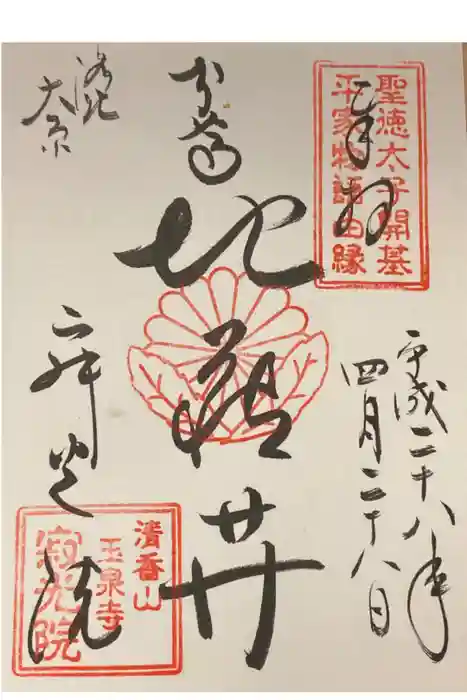 奉拝
聖徳太子開基
平家物語由縁
平成二十八年
四月二十八日
本尊
地蔵𦬇
洛北
大原
寂光院
清香山
玉泉寺
寂光院